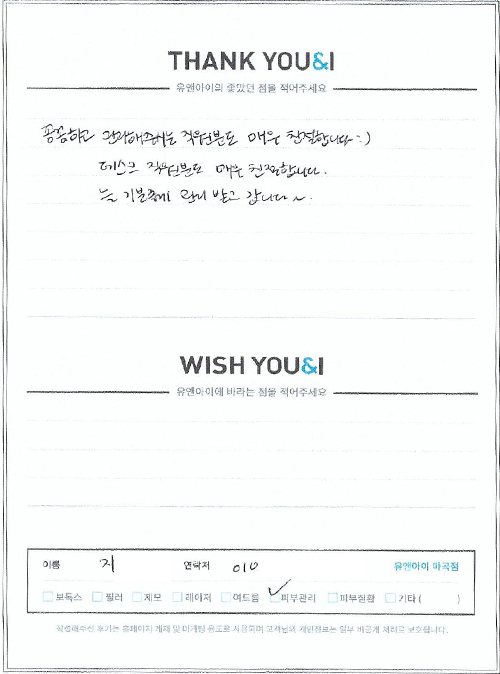 THANK YOU&I
유앤아이의 좋았던 점을 적어주세요
꼼꼼하고 관리해주시는 직원분도 매우 친절합니다 :)
데스크 직원분도 매우 친절합니다.
늘 기분좋게 관리 받고 갑니다~.
WISH YOU&I
유앤아이에 바라는 점을 적어주세요
이름 지 연락처 010 유앤아이 마곡점
보톡스 필러 제모 레이저 여드름 피부관리 피부질환 기타 ( )
작성해주신 후기는 홈페이지 게재 및 마케팅 용도로 사용되며 고객님의 개인정보는 일부 비공개 처리로 보호됩니다.